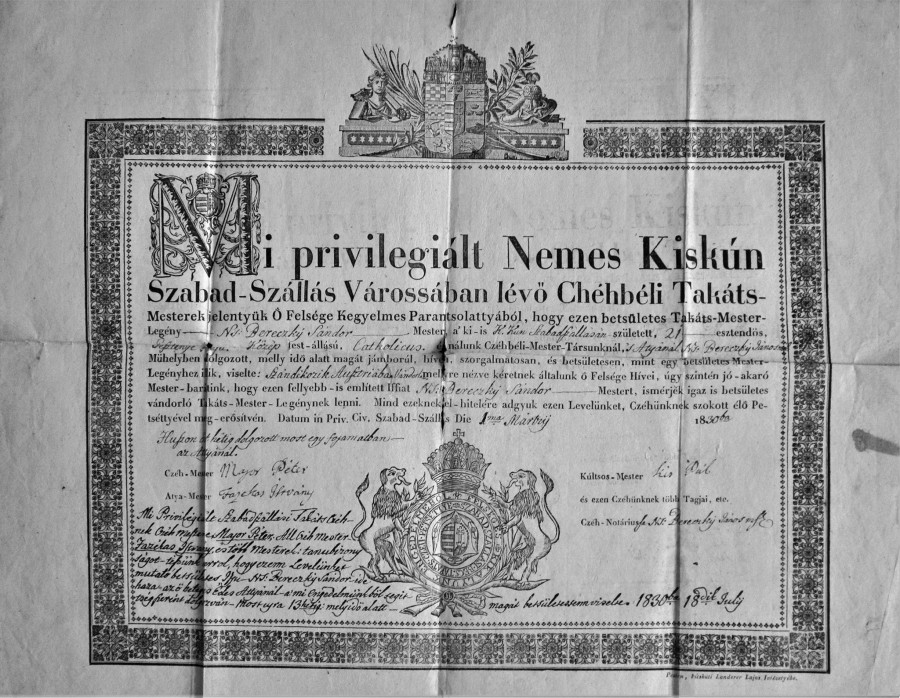 Mi privilegiált Nemes Kiskún
Szabad-Szállás Várossában lévő Chéhbéli Takáts-
Mesterek jelentyük Ő Felsége Kegyelmes Parantsolattyából, hogy ezen betsületes Takáts-Mester-
Legény Ns. Bereczky Sándor Mester, a' ki-is K. Kún Szabadszálláson született, 21 esztendős,
Közép test-állású, Catholicus nálunk Czéhbeli-Mester-Társunknál, 's Attyánál Ns. Bereczky János
Műhelyben dolgozott, melly idő alatt magát jámborúl, híven, szorgalmatosan, és betsületesen, mint egy betsületes Mester-
Legényhez illik, viselte: melyre nézve kéretnek általunk ő Felsége Hívei, úgy szintén jó-akaró
Mester-barátink, hogy ezen fellyebb-is említett Iffiat Ns. Bereczky Sándor Mestert, ismérjék igaz is betsületes
vándorló Takáts-Mester-Legénynek lenni. Mind ezeknek-el-hitelére adgyuk ezen Levelünket, Czéhünknek szokott élő Pe-
tséttyével meg-erősítvén. Datum in Priv. Civ. Szabad-Szállás Die 1ma Márty 1830ba
Huszon öt hétig dolgozott most egy folyamatban
az Attyánál.
Czéh-Mester Major Péter
Kúltsos-Mester Kis Pál
Atya-Mester Fazekas István
és ezen Czéhünknek több Tagjai, etc.
Czéh-Notáriusa Ns. Bereczky János
Mi Privilégiált Szabadszállási Takáts Czéh-
nek Czéh mestere Major Péter, Att Czéh Mester
Fazékas István, és több Mesterei tanubizony
ságot tészünk arról, hogy ezem Levelünket
mutató betsületes Ifju Ns. Bereczky Sándor ide
haza az ő Édes Attyánál a mi engedelmünkből segít
Mostujra 13 hétig mely idő alatt
magát betsületessen viselte 1830ba 18dik July
Pesten, Füskúti Landerer Lajos betűivel.